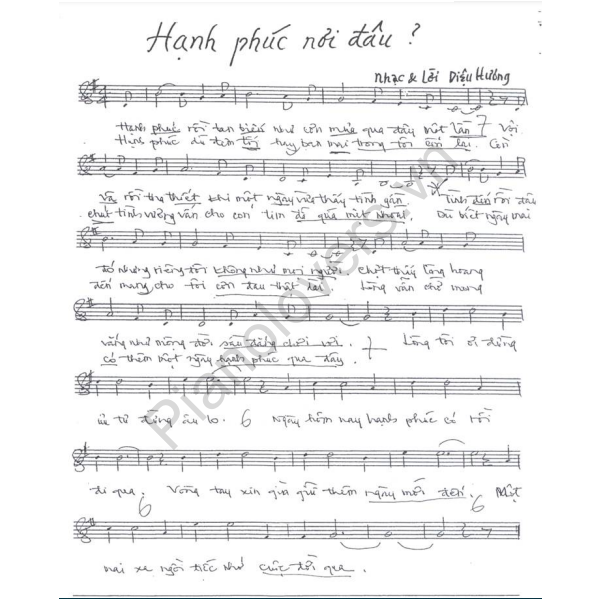 Hạnh phúc nơi đâu ?
Nhạc & Lời Diệu Hương
Hạnh phúc rồi tan biến như cơn mưa qua đây một lần Vội
Hạnh phúc dù đêm tối hay ban mai trong tôi còn lại. Còn
Vã rồi tha thiết khi một ngày vừa thấy tình gần Tình đến rồi đâu
chút tình vương vấn cho con tim đi qua miệt nhoài. Dù biết ngày mai
đó nhưng riêng tôi không như mọi người chợt thấy lòng hoang
đến mang cho tôi cơn đau thật dài Lòng vẫn chờ mong
vắng như mộng đời sâu dâng chơi vơi. Lòng tôi ơi đừng
có thêm một ngày hạnh phúc qua đây.
ủ tư đừng âu lo. 6 Ngày hôm nay hạnh phúc có rồi
đi qua. 6 Vòng tay xin gìn giữ thêm ngày mới đến. 6 Một
mai xa ngồi tiếc nhớ cuộc đời qua.
Pianolovers.vn